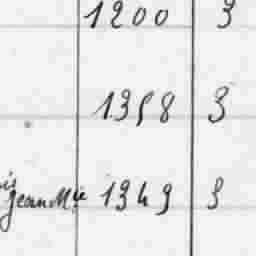 1200 3
1358 3
Jean Mie 1349 3